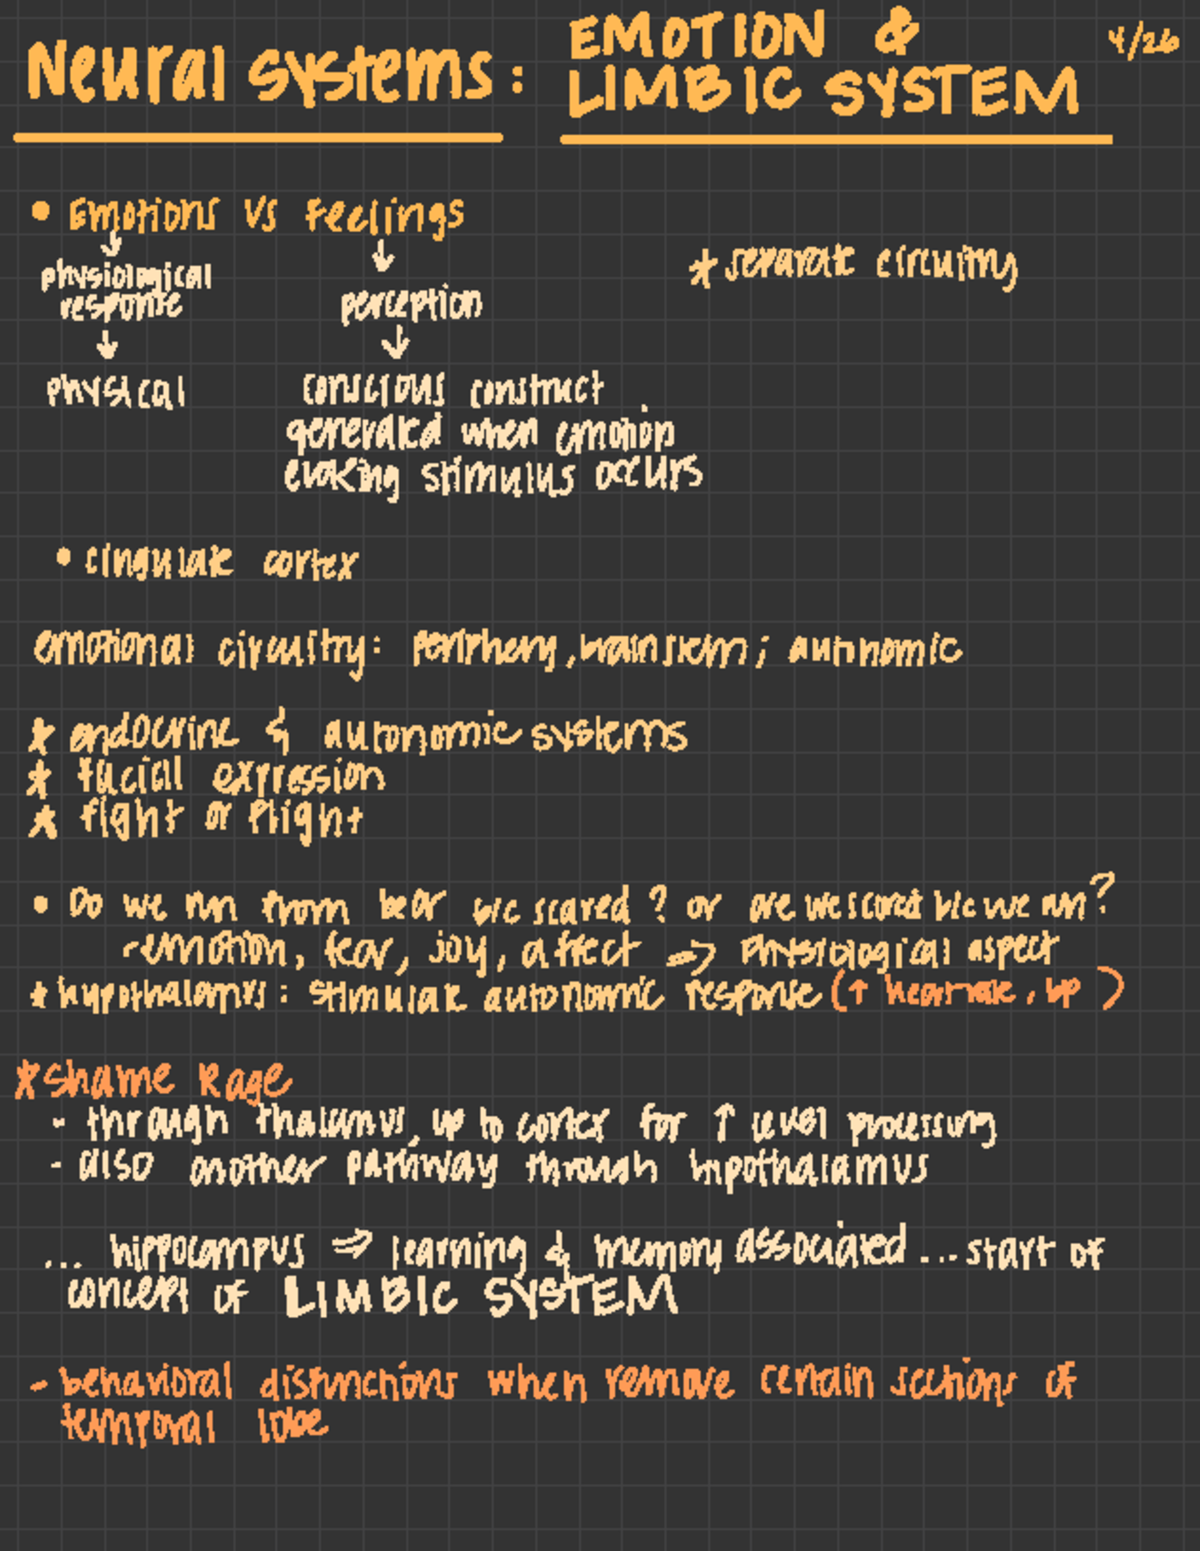 Neural systems: EMOTION &
LIMBIC SYSTEM
4/26
• Emotions vs Feelings
↓ ↓
physiological
response
perception
* separate circuitry
↓ ↓
physical
conscious construct
generated when emotion
evoking stimulus occurs
• cingulate cortex
emotional circuitry: periphery, brainstem; autonomic
* endocrine & autonomic systems
* facial expression
* fight or flight
• Do we run from bear b/c scared? or are we scared b/c we run?
- emotion, fear, joy, affect => physiological aspect
* hypothalamus: stimulate autonomic response (↑ heartrate, bp)
* Shame Rage
- through thalamus, up to cortex for ↑ level processing
- also another pathway through hypothalamus
... hippocampus => learning & memory associated ... start of
concept of LIMBIC SYSTEM
- behavioral distinctions when remove certain sections of
temporal lobe